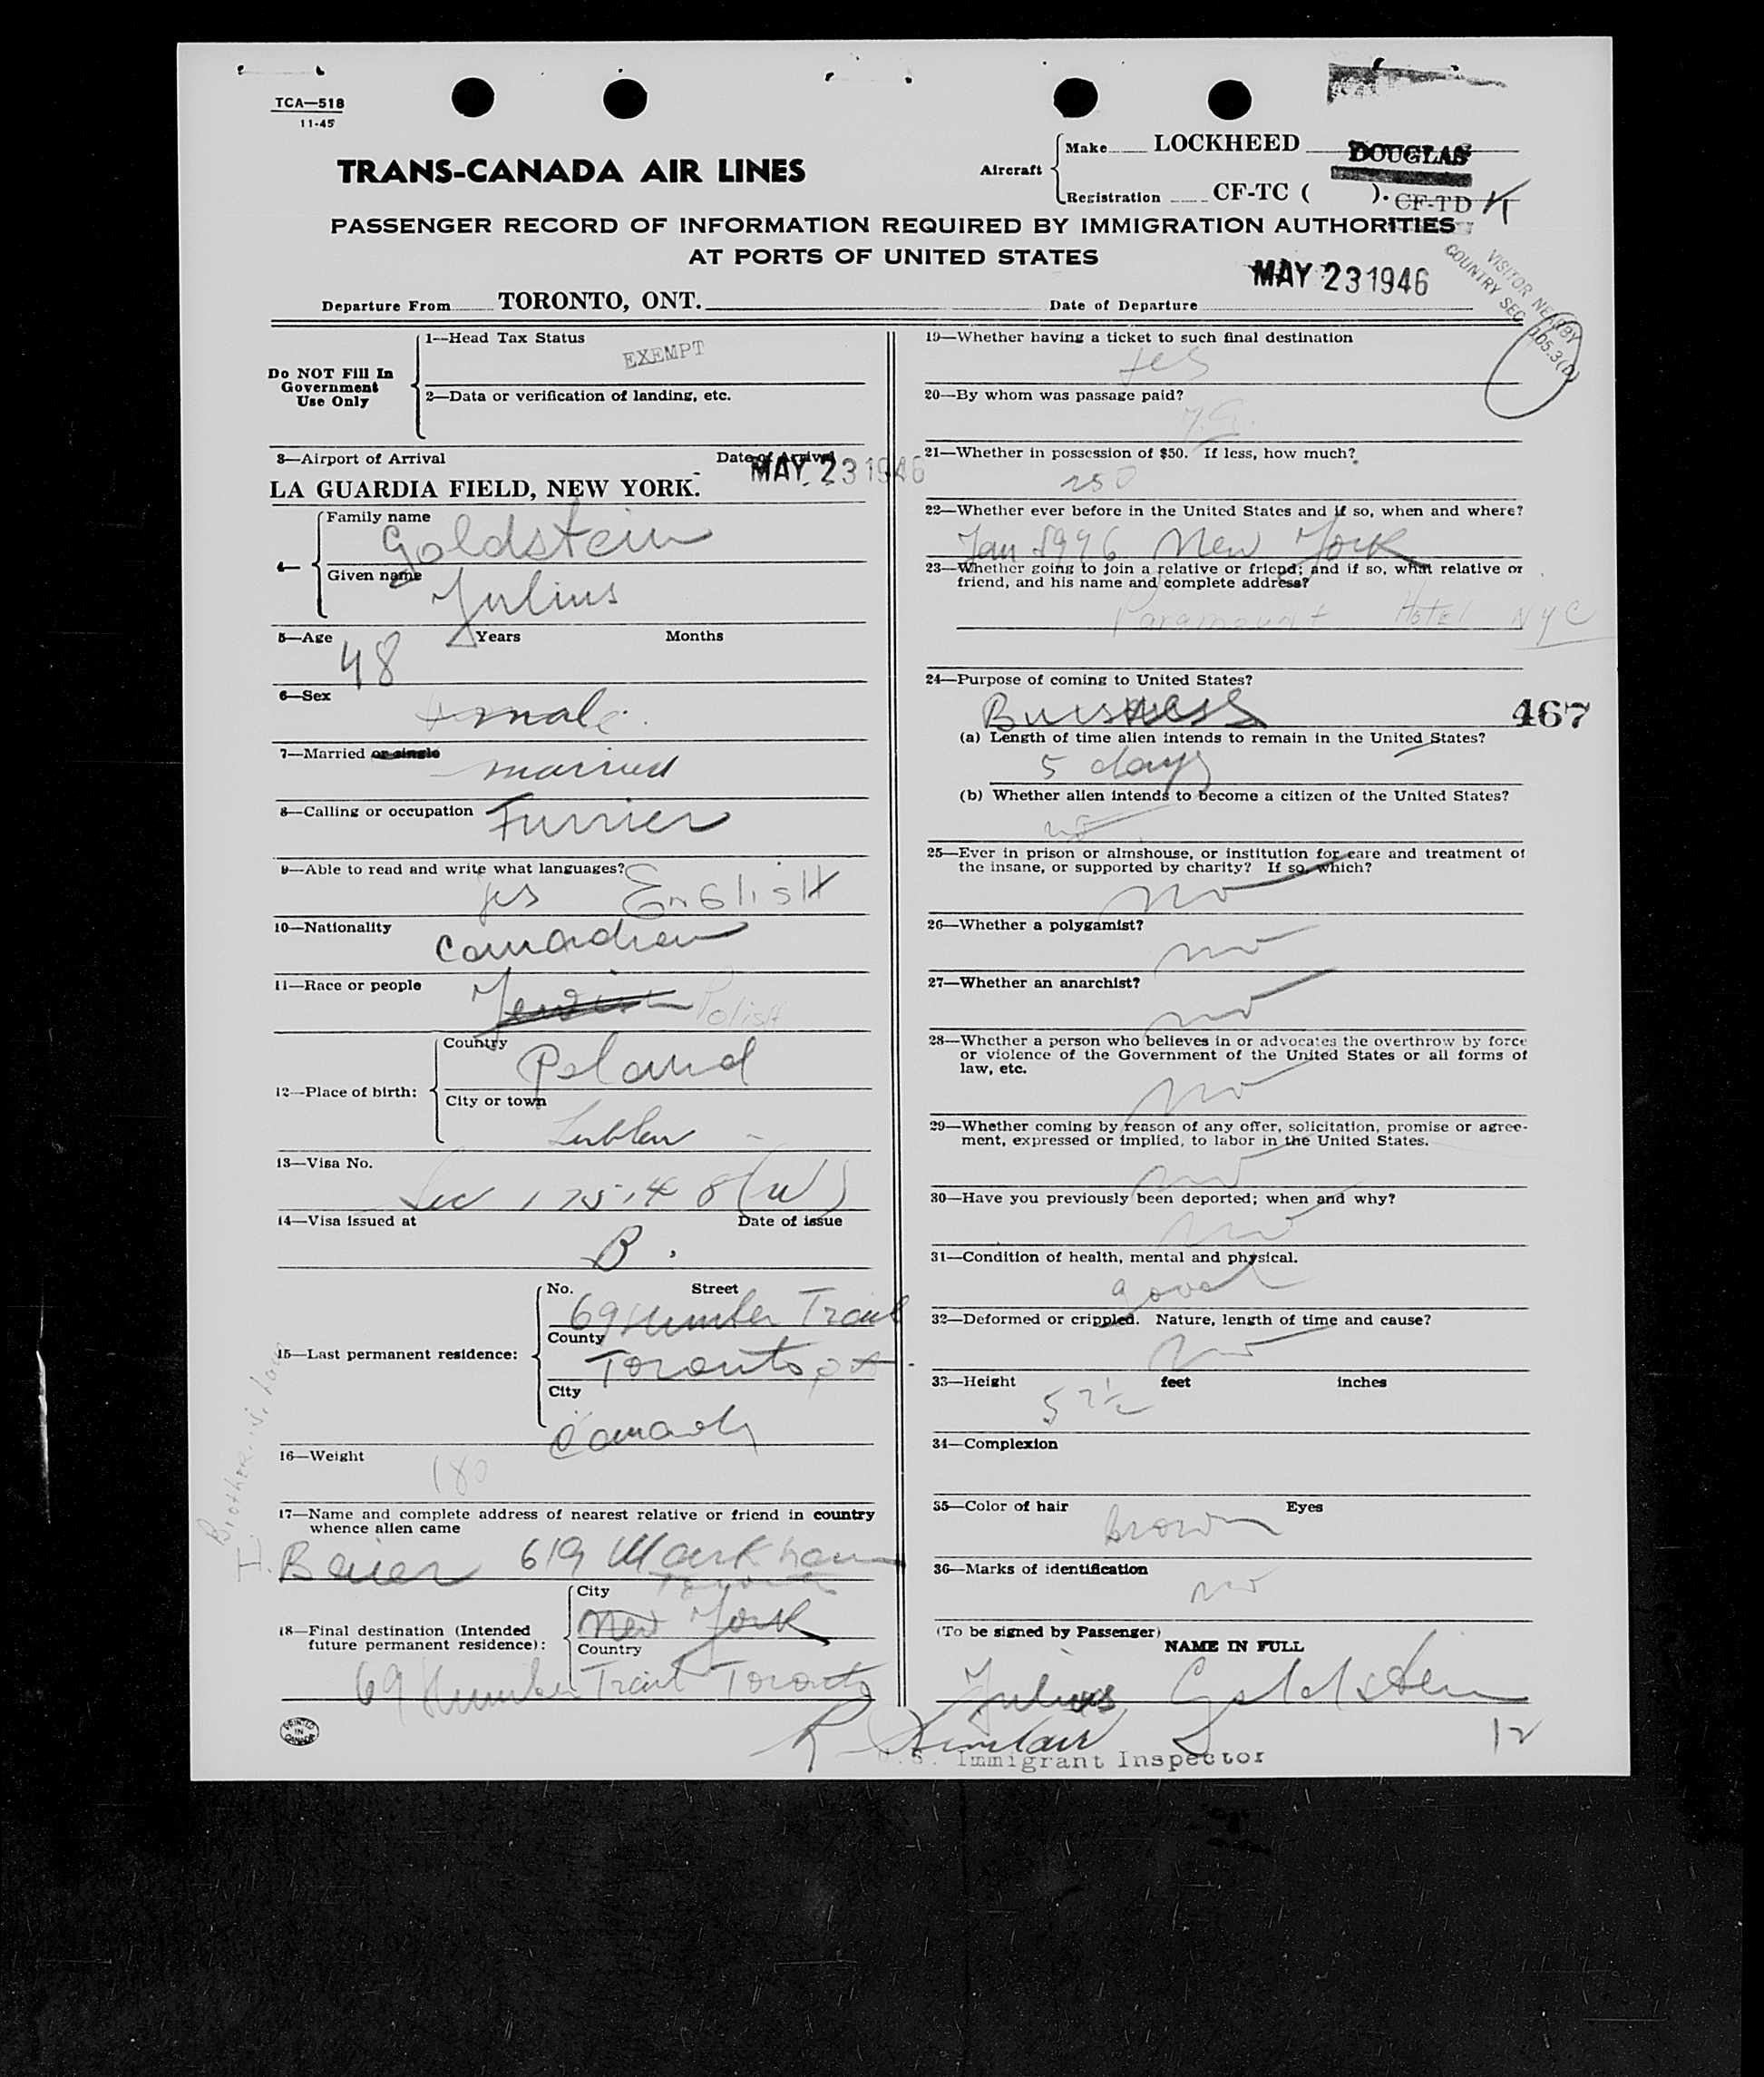 TCA—518
11-45
TRANS-CANADA AIR LINES
Aircraft
Make LOCKHEED DOUGLAS
Registration CF-TC ( ). CF-TD K
PASSENGER RECORD OF INFORMATION REQUIRED BY IMMIGRATION AUTHORITIES
AT PORTS OF UNITED STATES
VISITOR NEARBY
COUNTRY SEC. 105.3(b)
MAY 23 1946
Departure From TORONTO, ONT. Date of Departure
Do NOT Fill In
Government
Use Only
1—Head Tax Status
EXEMPT
2—Data or verification of landing, etc.
3—Airport of Arrival Date of Arrival
LA GUARDIA FIELD, NEW YORK. MAY 23 1946
4—
Family name
Goldstein
Given name
Julius
5—Age Years Months
48
6—Sex
male
7—Married or single
married
8—Calling or occupation Furrier
9—Able to read and write what languages?
yes English
10—Nationality
Canadian
11—Race or people
Jewish Polish
12—Place of birth:
Country
Poland
City or town
Lublin
13—Visa No.
Sec 175.48(w)
14—Visa issued at Date of issue
B.
15—Last permanent residence:
No. Street
69 Humber Trail
County
Toronto
City
Canada
16—Weight
180
17—Name and complete address of nearest relative or friend in country
whence alien came
Brother in law
I. Beier 619 Markham
Toronto
18—Final destination (Intended
future permanent residence):
City
New York
Country
69 Humber Trail Toronto
PRINTED
IN
CANADA
19—Whether having a ticket to such final destination
yes
20—By whom was passage paid?
J.G.
21—Whether in possession of $50. If less, how much?
250
22—Whether ever before in the United States and if so, when and where?
Jan 1946 New York
23—Whether going to join a relative or friend; and if so, what relative or
friend, and his name and complete address?
Paramount Hotel NYC
24—Purpose of coming to United States?
Buisness
467
(a) Length of time alien intends to remain in the United States?
5 days
(b) Whether alien intends to become a citizen of the United States?
no
25—Ever in prison or almshouse, or institution for care and treatment of
the insane, or supported by charity? If so, which?
no
26—Whether a polygamist?
no
27—Whether an anarchist?
no
28—Whether a person who believes in or advocates the overthrow by force
or violence of the Government of the United States or all forms of
law, etc.
no
29—Whether coming by reason of any offer, solicitation, promise or agree-
ment, expressed or implied, to labor in the United States.
no
30—Have you previously been deported; when and why?
no
31—Condition of health, mental and physical.
good
32—Deformed or crippled. Nature, length of time and cause?
no
33—Height feet inches
5 7½
34—Complexion
35—Color of hair Eyes
Brown
36—Marks of identification
no
(To be signed by Passenger)
NAME IN FULL
Julius Goldstein
12
R Sinclair
U.S. Immigrant Inspector